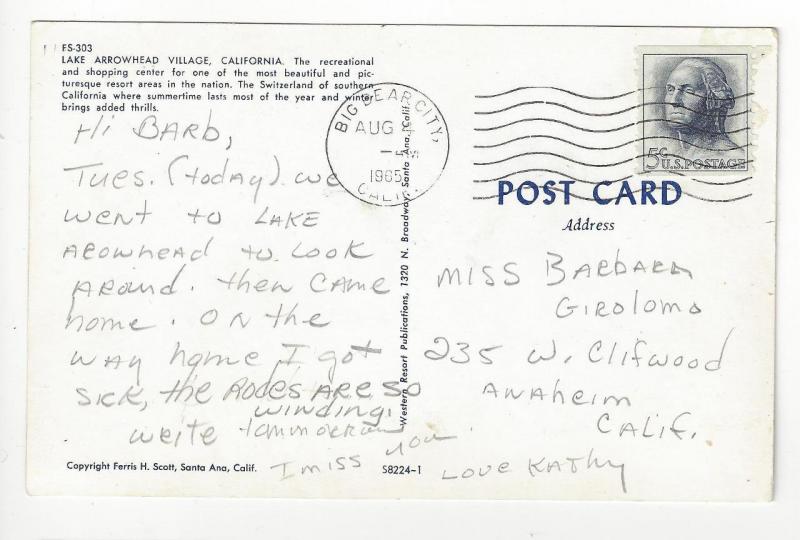 FS-303
LAKE ARROWHEAD VILLAGE, CALIFORNIA. The recreational
and shopping center for one of the most beautiful and pic-
turesque resort areas in the nation. The Switzerland of southern
California where summertime lasts most of the year and winter
brings added thrills.
Hi BARB,
TUES. (today) we
went to LAKE
AROWHEAD to LOOK
AROUND. then CAME
home. ON the
WAY home I got
SICK, the RODES ARE SO
WINDING.
WRITE tommorrow
I miss you
LOVE KATHY
Copyright Ferris H. Scott, Santa Ana, Calif.
S8224-1
Western Resort Publications, 1320 N. Broadway, Santa Ana, Calif.
BIG BEAR CITY,
AUG
1965
CALIF.
5c U.S. POSTAGE
POST CARD
Address
MISS BARBARA
GIROLOMO
235 W. Clifwood
ANAHEIM
CALIF.